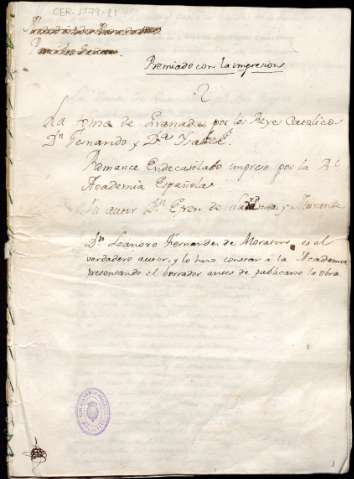 CER-1779-21
Premiado con la impresion
2
La toma de Granada por los Reyes Catolicos
Dn Fernando y Dª Isabel.
Romance Endecasilabo impreso por la Rl
Academia Española
Su autor Dn Efren de y Morante
Dn Leandro Fernandez de Moratin es el
verdadero autor, y lo hizo constar á la Academia
presentando el borrador antes de publicarse la obra